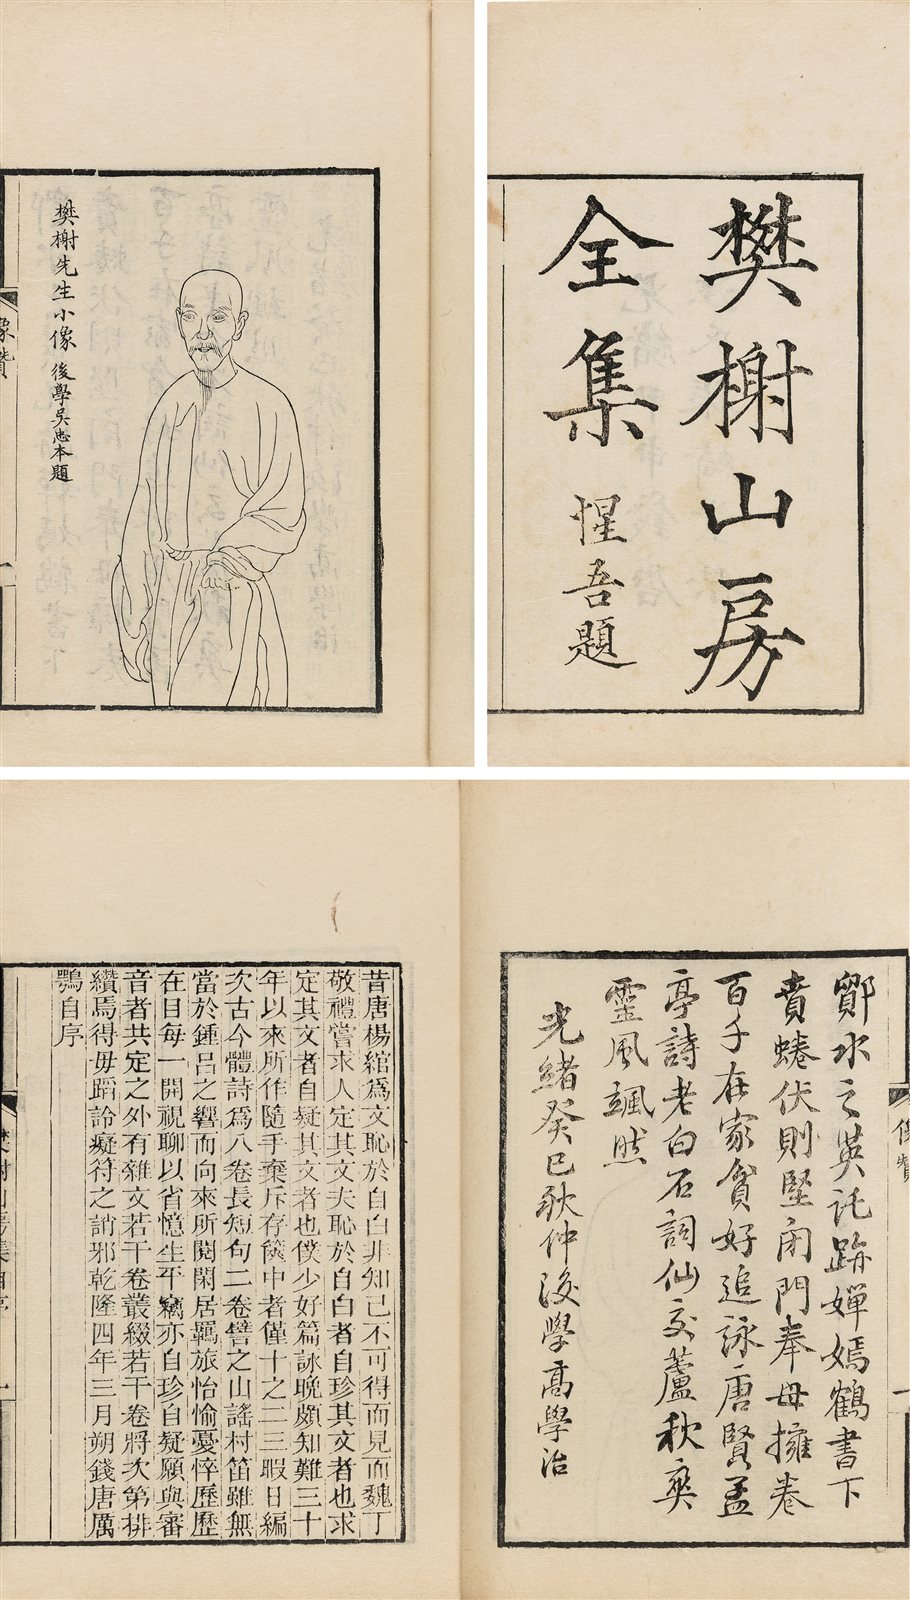 樊榭山房
全集
惺吾題
樊榭先生小像 後學吳忠本題
像贊
鄮水之英託跡嬋嫣鶴書下
賁蜷伏則堅閉門奉母擁卷
百千在家貧好追詠唐賢孟
亭詩老白石詞仙交蘆秋爽
靈風颯然
光緒癸巳秋仲後學高學治
像贊
一
昔唐楊綰為文恥於自白非知己不可得而見而魏丁
敬禮嘗求人定其文夫恥於自白者自珍其文者也求
定其文者自疑其文者也僕少好篇詠晩頗知難三十
年以來所作隨手棄斥存篋中者僅十之二三暇日編
次古今體詩為八卷長短句二卷譬之山謠村笛雖無
當於鍾呂之響而向來所閱閑居羈旅怡愉憂悴歷歷
在目每一開視聊以省憶生平竊亦自珍自疑願與審
音者共定之外有雜文若干卷叢綴若干卷將次第排
纘焉得毋蹈詅癡符之誚邪乾隆四年三月朔錢唐厲
鶚自序
樊榭山房集自序
一